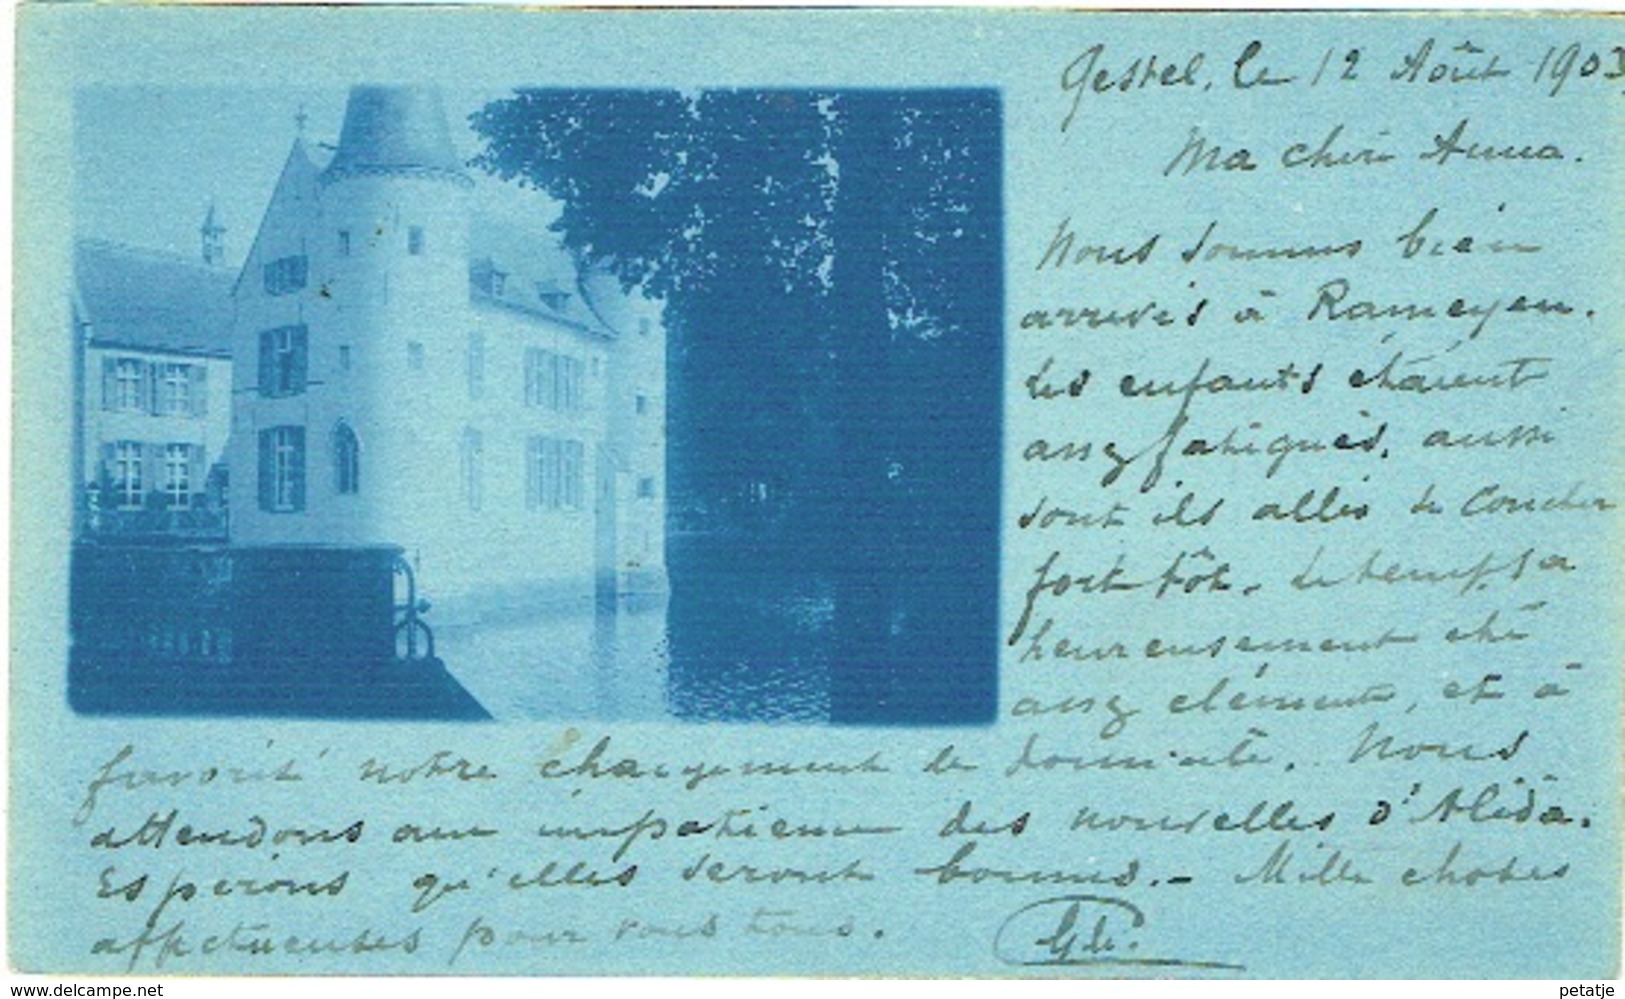 Gestel, le 12 Août 1903.
Ma chère Anna.
Nous sommes bien
arrivés à Rameyen.
Les enfants étaient
assez fatigués, aussi
sont ils allés se coucher
fort tôt. Le temps a
heureusement été
assez clément, et à
favorisé notre changement de domicile. Nous
attendons avec impatience des nouvelles d'Alida.
Espérons qu'elles seront bonnes. - Mille choses
affectueuses pour vous tous.
www.delcampe.net
petatje